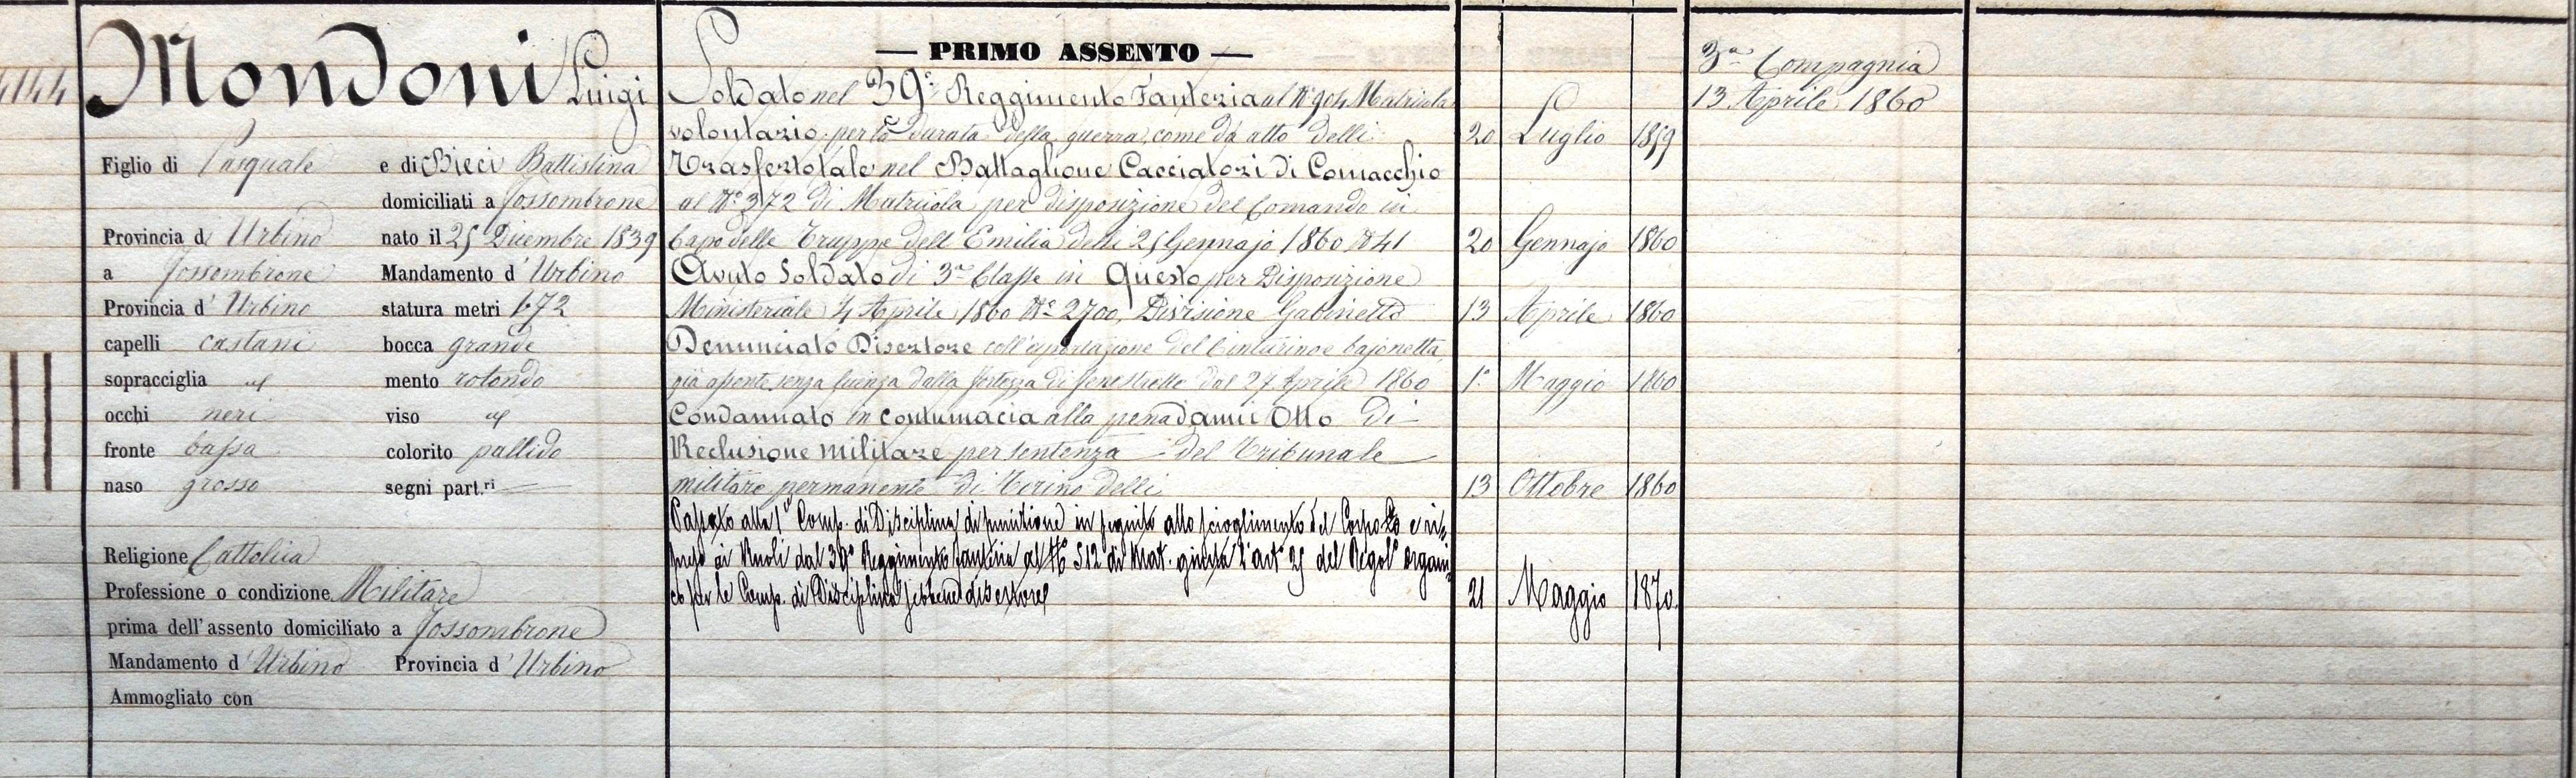 4144
Mondoni Luigi
Figlio di Pasquale e di Bieci Battistina
domiciliati a Fossombrone
Provincia d Urbino nato il 25 Dicembre 1839
a Fossombrone Mandamento d' Urbino
Provincia d' Urbino statura metri 1.72
capelli castani bocca grande
sopracciglia id mento rotondo
occhi neri viso id
fronte bassa colorito pallido
naso grosso segni part.ri —
Religione Cattolica
Professione o condizione Militare
prima dell'assento domiciliato a Fossombrone
Mandamento d' Urbino Provincia d' Urbino
Ammogliato con
— PRIMO ASSENTO —
Soldato nel 39° Reggimento Fanteria al N° 904 Matricola
volontario per la durata della guerra, come da atto delli 20 Luglio 1859
Trasfertotale nel Battaglione Cacciatori di Comacchio
al N° 372 di Matricola per disposizione del Comando in
Capo delle Truppe dell'Emilia delli 25 Gennajo 1860 N° 41 20 Gennajo 1860
Avuto Soldato di 3a Classe in Questo per Disposizione
Ministeriale 4 Aprile 1860 N° 2700, Divisione Gabinetto 13 Aprile 1860
Denunciato Disertore coll'esportazione del Cinturino e bajonetta,
già assente senza licenza dalla fortezza di Fenestrelle dal 27 Aprile 1860 1° Maggio 1860
Condannato in contumacia alla pena d'anni Otto di
Reclusione militare per sentenza del Tribunale
militare permanente di Torino delli 13 Ottobre 1860
Passato alla 1a Comp. di Disciplina di punizione in seguito allo scioglimento del Corpo e ri-
preso ai Ruoli dal 39° Reggimento fanteria al N° 512 di Mat. giusta l'art° 25 del Regol° organi-
co per le Comp. di Disciplina sebbene disertore 21 Maggio 1870.
3a Compagnia
13 Aprile 1860